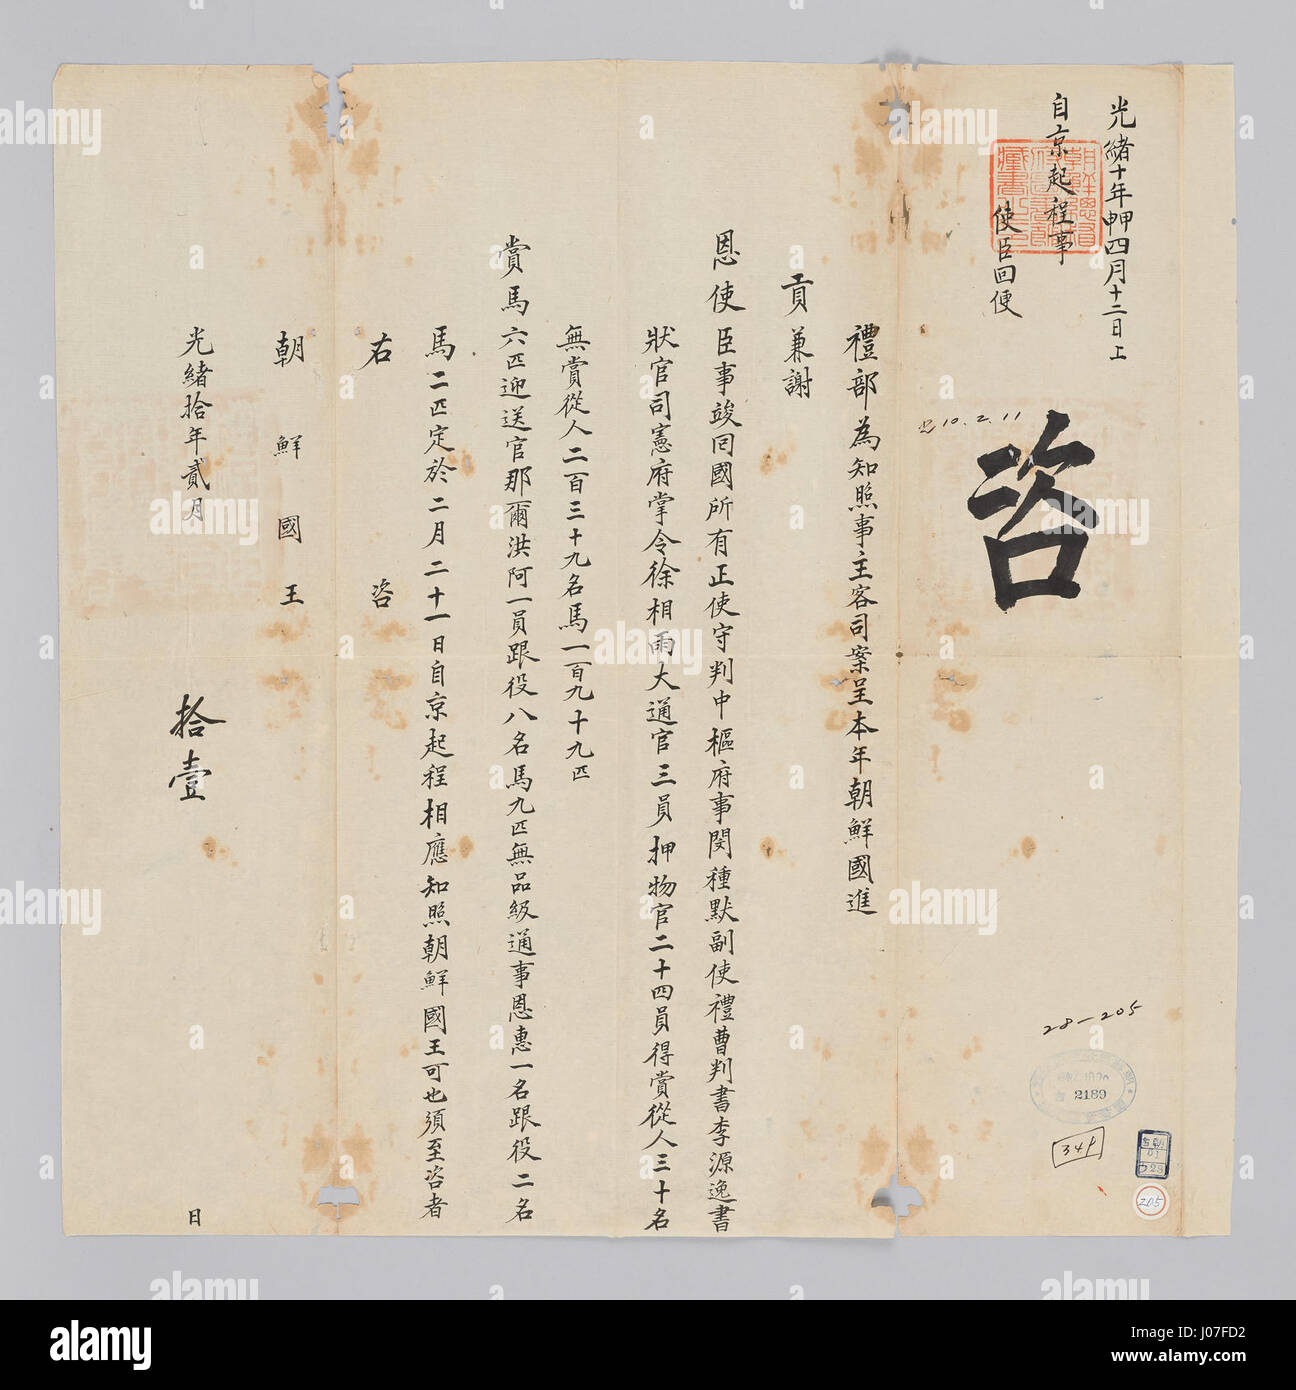 光緒十年甲申四月十二日上
自京起程事
使臣回便
朝鮮總督府圖書館藏書之印
咨
光10.2.11
禮部為知照事主客司案呈本年朝鮮國進
貢兼謝
恩使臣事竣回國所有正使守判中樞府事閔種默副使禮曹判書李源逸書
狀官司憲府掌令徐相雨大通官三員押物官二十四員得賞從人三十名
無賞從人二百三十九名馬一百九十九匹
賞馬六匹迎送官那爾洪阿一員跟役八名馬九匹無品級通事恩惠一名跟役二名
馬二匹定於二月二十一日自京起程相應知照朝鮮國王可也須至咨者
右咨
朝鮮國王
光緒拾年貳月拾壹日
28-205
2189
34f
205
alamy
Image ID: J07FD2
www.alamy.com